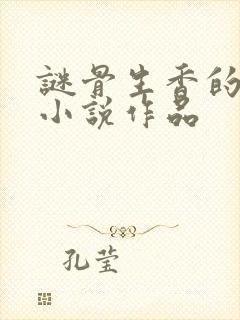 謎骨生香的
小說作品
孔莹